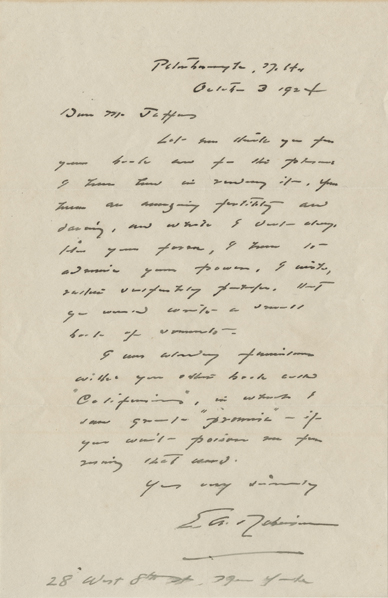 Peterborough, N.H.
October 3 1924
Dear Mr Jeffers
Let me thank you for
your book and for the pleasure
I have had in reading it. You
have an amazing fertility and
daring, and while I don't always
like your form, I have to
admire your power. I wish,
rather selfishly perhaps, that
you would write a small
book of sonnets.
I was already familiar
with your other book called
"Californians", in which I
saw great "promise" – if
you won't poison me for
using that word.
Yours very sincerely
E. A. Robinson
28 West 8th St., New York